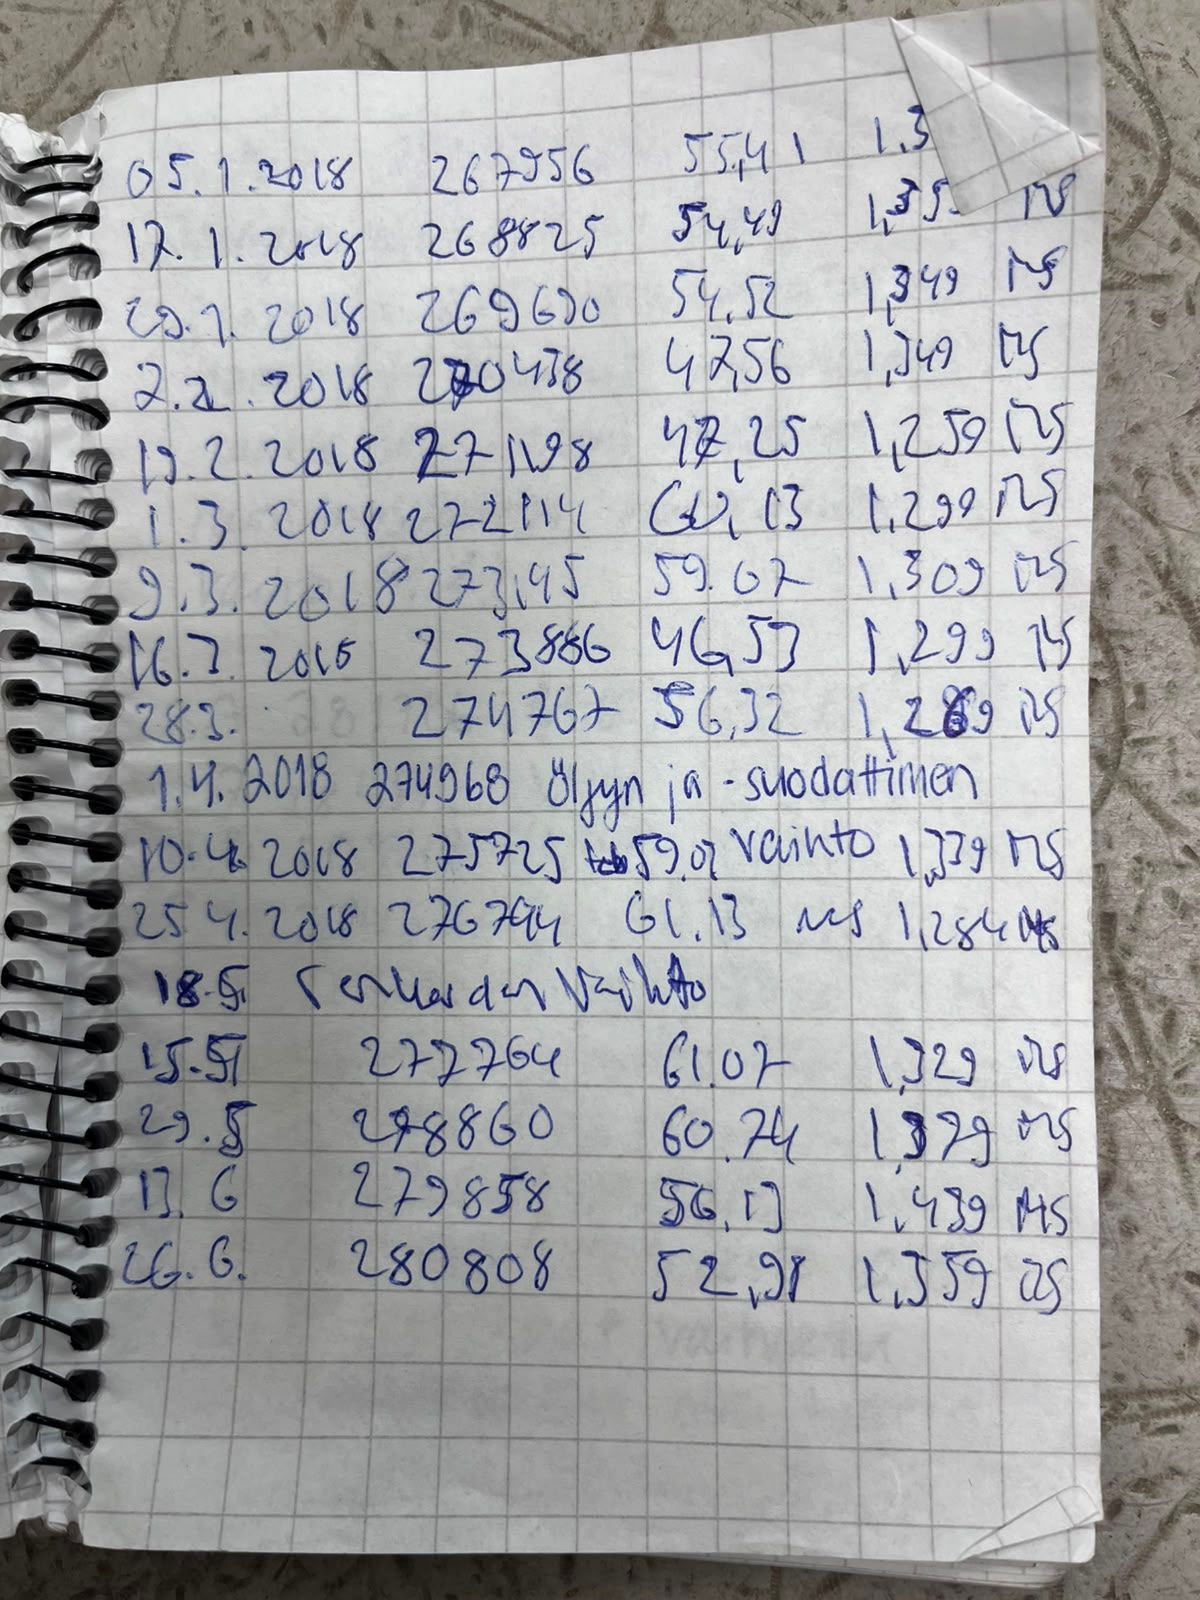 05.1.2018 267956 55,41 1,3
17.1.2018 268825 54,49 1,35
29.1.2018 269690 54,52 1,349
7.2.2018 270438 47,56 1,349
19.2.2018 271198 47,25 1,259
1.3.2018 272114 60,13 1,299
9.3.2018 273145 59.07 1,309
16.3 2018 273886 46,53 1,299
28.3. 274767 56,32 1,269
1.4.2018 274968 Öljyn ja -suodattimen
10.4 2018 275725 59.07 vaihto 1,339
25 4.2018 276794 61.13 1,284
18.5 renkaiden vaihto
15.5 277764 61.07 1,329
29.5 278860 60.74 1,379
13.6 279858 56,13 1,439
26.6. 280808 52,98 1,359